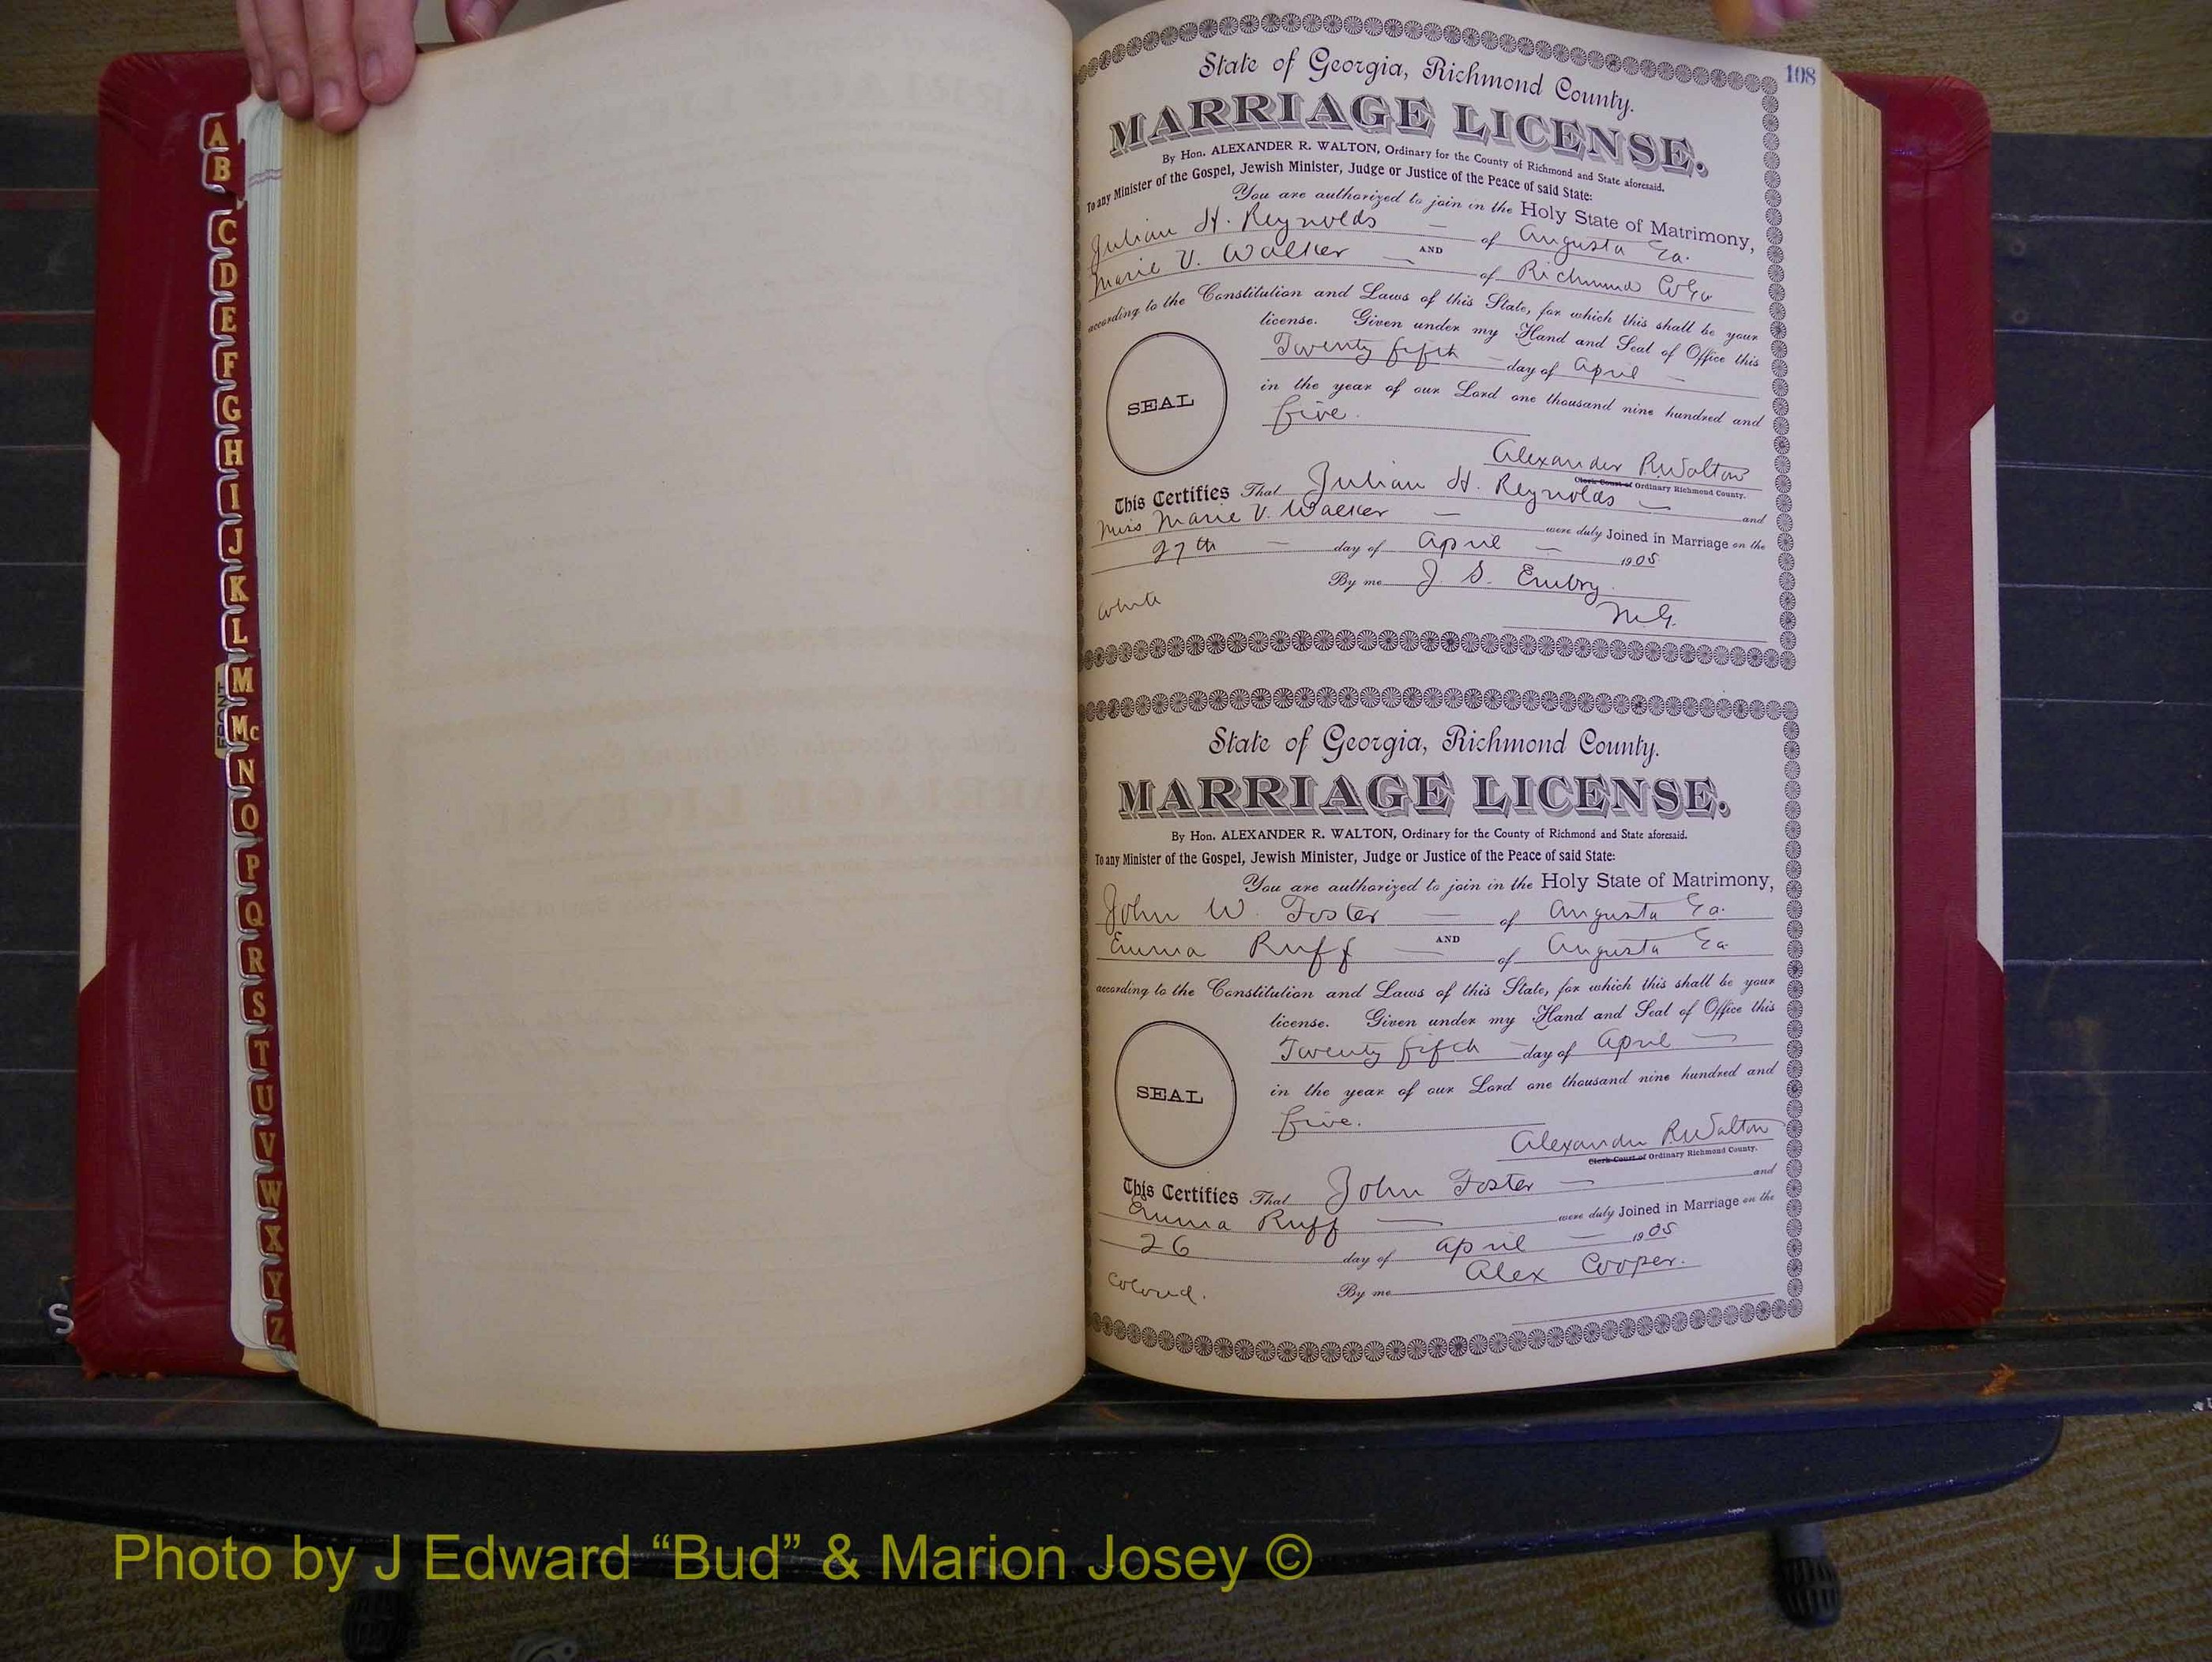 A
B
C
D
E
F
G
H
I
J
K
L
M
Mc
N
O
P
Q
R
S
T
U
V
W
X
Y
Z
FRONT
S
108
State of Georgia, Richmond County.
MARRIAGE LICENSE.
By Hon. ALEXANDER R. WALTON, Ordinary for the County of Richmond and State aforesaid.
To any Minister of the Gospel, Jewish Minister, Judge or Justice of the Peace of said State:
You are authorized to join in the Holy State of Matrimony,
Julian H. Reynolds — of Augusta Ga.
AND
Marie V. Walker — of Richmond Co Ga
according to the Constitution and Laws of this State, for which this shall be your
license. Given under my Hand and Seal of Office this
Twenty fifth — day of April —
in the year of our Lord one thousand nine hundred and
five.
SEAL
Alexander R Walton
Clerk Court of Ordinary Richmond County.
This Certifies That Julian H. Reynolds — and
Miss Marie V. Walker — were duly Joined in Marriage on the
27th — day of April — 1905
By me J. S. Embry.
M.G.
White
State of Georgia, Richmond County.
MARRIAGE LICENSE.
By Hon. ALEXANDER R. WALTON, Ordinary for the County of Richmond and State aforesaid.
To any Minister of the Gospel, Jewish Minister, Judge or Justice of the Peace of said State:
You are authorized to join in the Holy State of Matrimony,
John W. Foster — of Augusta Ga.
AND
Emma Ruff — of Augusta Ga
according to the Constitution and Laws of this State, for which this shall be your
license. Given under my Hand and Seal of Office this
Twenty fifth — day of April —
in the year of our Lord one thousand nine hundred and
five.
SEAL
Alexander R Walton
Clerk Court of Ordinary Richmond County.
This Certifies That John Foster — and
Emma Ruff — were duly Joined in Marriage on the
26 day of April — 1905
By me Alex Cooper.
Colored.
Photo by J Edward “Bud” & Marion Josey ©